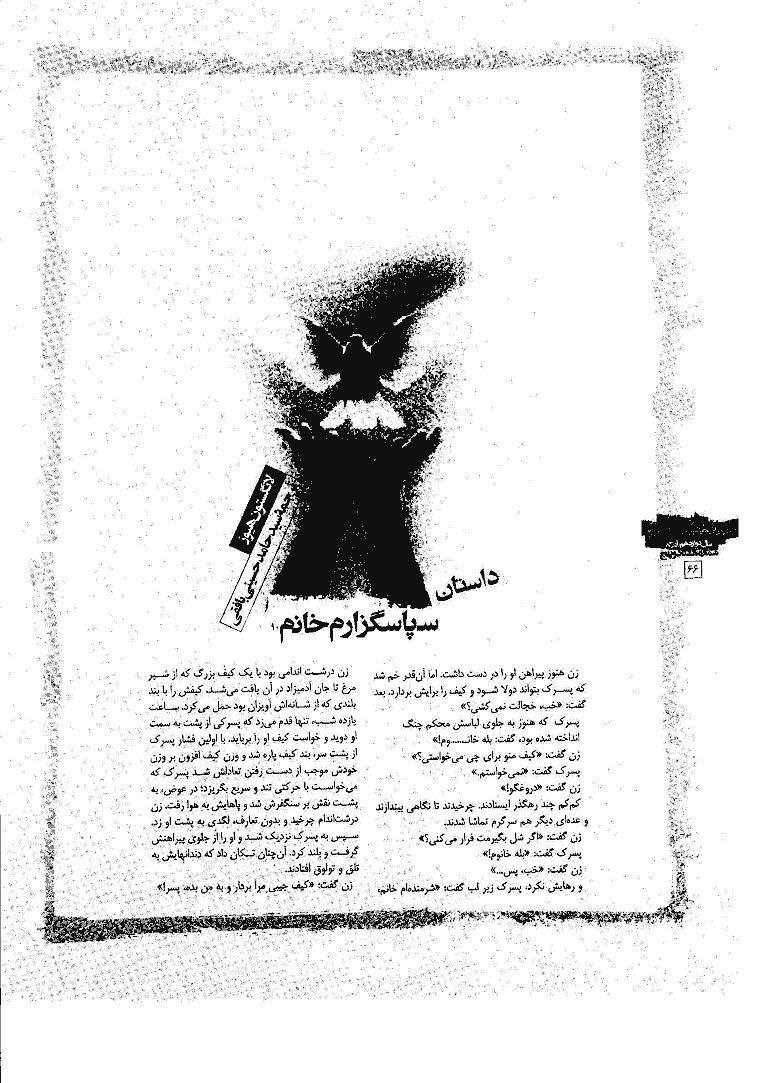 داستان
سپاسگزارم خانم
لانگستون هیوز
جمشید حامد حسینی بافقی
زن درشت اندامی بود با یک کیف بزرگ که از شیر
مرغ تا جان آدمیزاد در آن یافت می‌شد. کیفش را با بند
بلندی که از شانه‌اش آویزان بود حمل می‌کرد. ساعت
یازده شب، تنها قدم می‌زد که پسرکی از پشت به سمت
او دوید و خواست کیف او را برباید. با اولین فشار پسرک
از پشت سر، بند کیف پاره شد و وزن کیف افزون بر وزن
خودش موجب از دست رفتن تعادلش شد پسرک که
می‌خواست با حرکتی تند و سریع بگریزد؛ در عوض، به
پشت نقش بر سنگفرش شد و پاهایش به هوا رفت. زن
درشت‌اندام چرخید و بدون تعارف، لگدی به پشت او زد.
سپس به پسرک نزدیک شد و او را از جلوی پیراهنش
گرفت و بلند کرد. آن‌چنان تکان داد که دندانهایش به
تلق و تولوق افتادند.
زن گفت: «کیف جیبی مرا بردار و به من بده، پسر!»
زن هنوز پیراهن او را در دست داشت. اما آن‌قدر خم شد
که پسرک بتواند دولا شود و کیف را برایش بردارد. بعد
گفت: «خب، خجالت نمی‌کشی؟»
پسرک که هنوز به جلوی لباسش محکم چنگ
انداخته شده بود، گفت: بله خانــــوم!»
زن گفت: «کیف منو برای چی می‌خواستی؟»
پسرک گفت: «نمی‌خواستم.»
زن گفت: «دروغگو!»
کم‌کم چند رهگذر ایستادند. چرخیدند تا نگاهی بیندازند
و عده‌ای دیگر هم سرگرم تماشا شدند.
زن گفت: «اگر شل بگیرمت فرار می‌کنی؟»
پسرک گفت: «بله خانوم!»
زن گفت: «خب، پس...»
و رهایش نکرد. پسرک زیر لب گفت: «شرمنده‌ام خانم،
۶۶